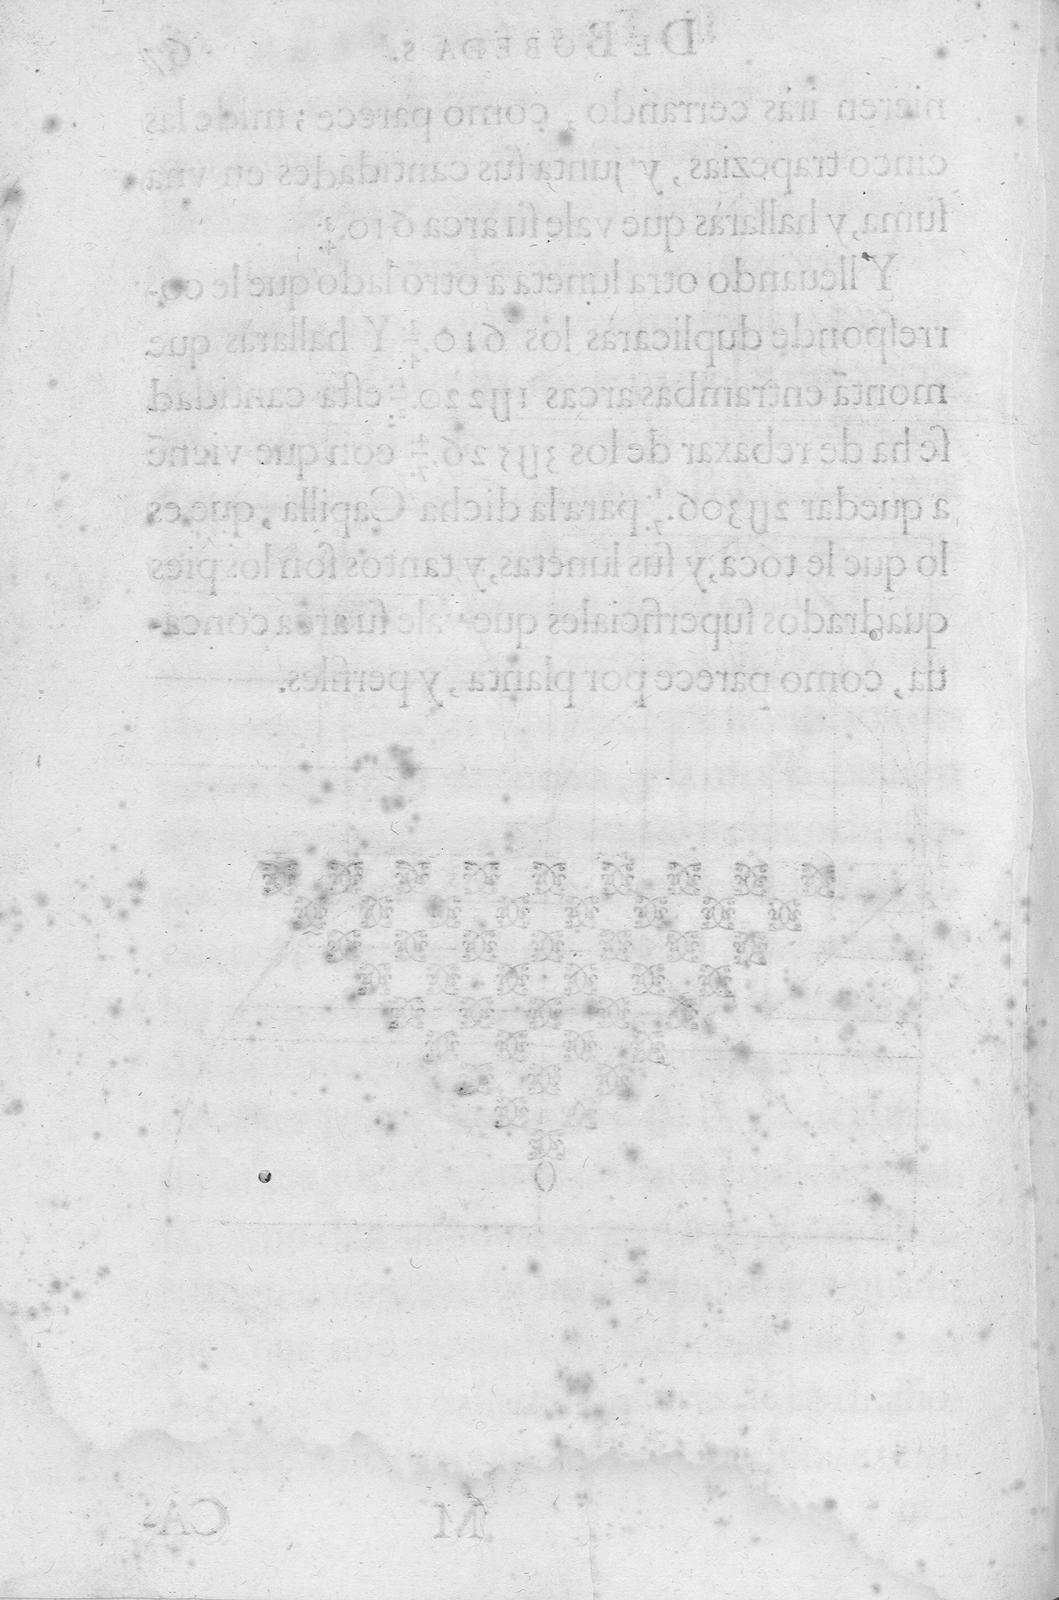 DE BOBEDAS. 67
nieren iràs cerrando, como parece; mide las
cinco trapezias, y junta sus cantidades en vna
suma, y hallaràs que vale su area 610.¾
Y lleuando otra luneta a otro lado que le co-
rresponde duplicaràs los 610.¾ Y hallaràs que
montã entrambas areas 1U220. esta cantidad
se ha de rebaxar de los 3U526.4/7 con que vienẽ
a quedar 2U306. para la dicha Capilla, que es
lo que le toca, y sus lunetas, y tantos son los pies
quadrados superficiales que vale su area conca-
ua, como parece por planta, y perfiles.
M CA-